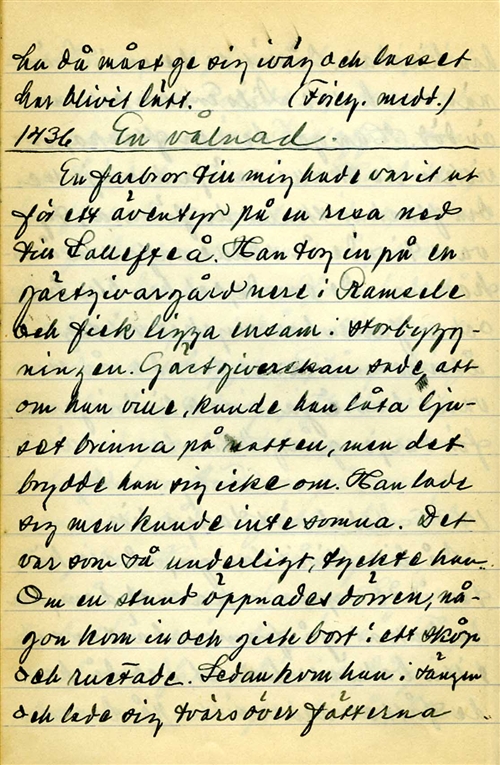 ha då måst ge sig iväg och lasset
har blivit lätt. (Föreg. medd.)
1436 En vålnad.
En farbror till mig hade varit ut
för ett äventyr på en resa ned
till Sallefteå. Han tog in på en
gästgivargård nere i Ramsele
och fick ligga ensam i storbygg-
ningen. Gästgiverskan sade, att
om han ville, kunde han låta lju-
set brinna på natten, men det
brydde han sig icke om. Han lade
sig men kunde inte somna. Det
var som så underligt, tyckte han.
Om en stund öppnades dörren, nå-
gon kom in och gick bort i ett skåp
och rustade. Sedan kom han i sängen
och lade sig tvärs över fötterna